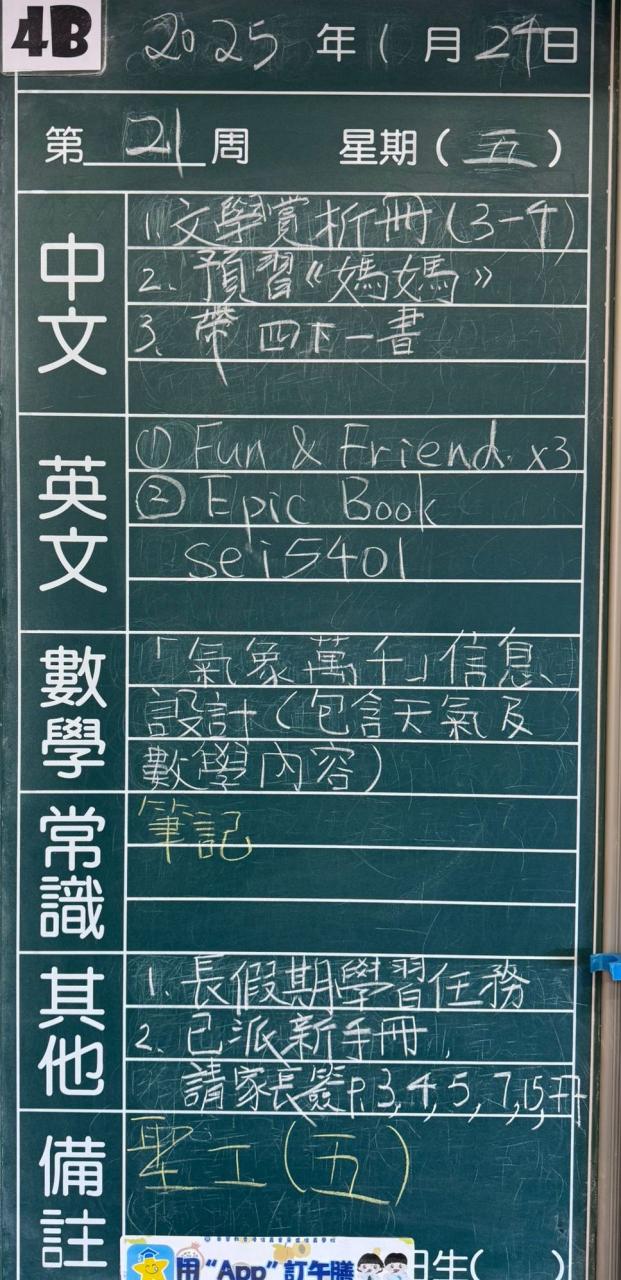 4B
2025年1月24日
第21周 星期(五)
中文
1. 文學賞析冊(3-4)
2. 預習《媽媽》
3. 帶四下一書
英文
① Fun & Friend. x3
② Epic Book
sei5401
數學
「氣象萬千」信息
設計(包含天氣及
數學內容)
常識
筆記
其他
1. 長假期學習任務
2. 已派新手冊,
請家長簽P.3,4,5,7,15,
備註
聖工(五)
用“App”訂午膳
日生( )